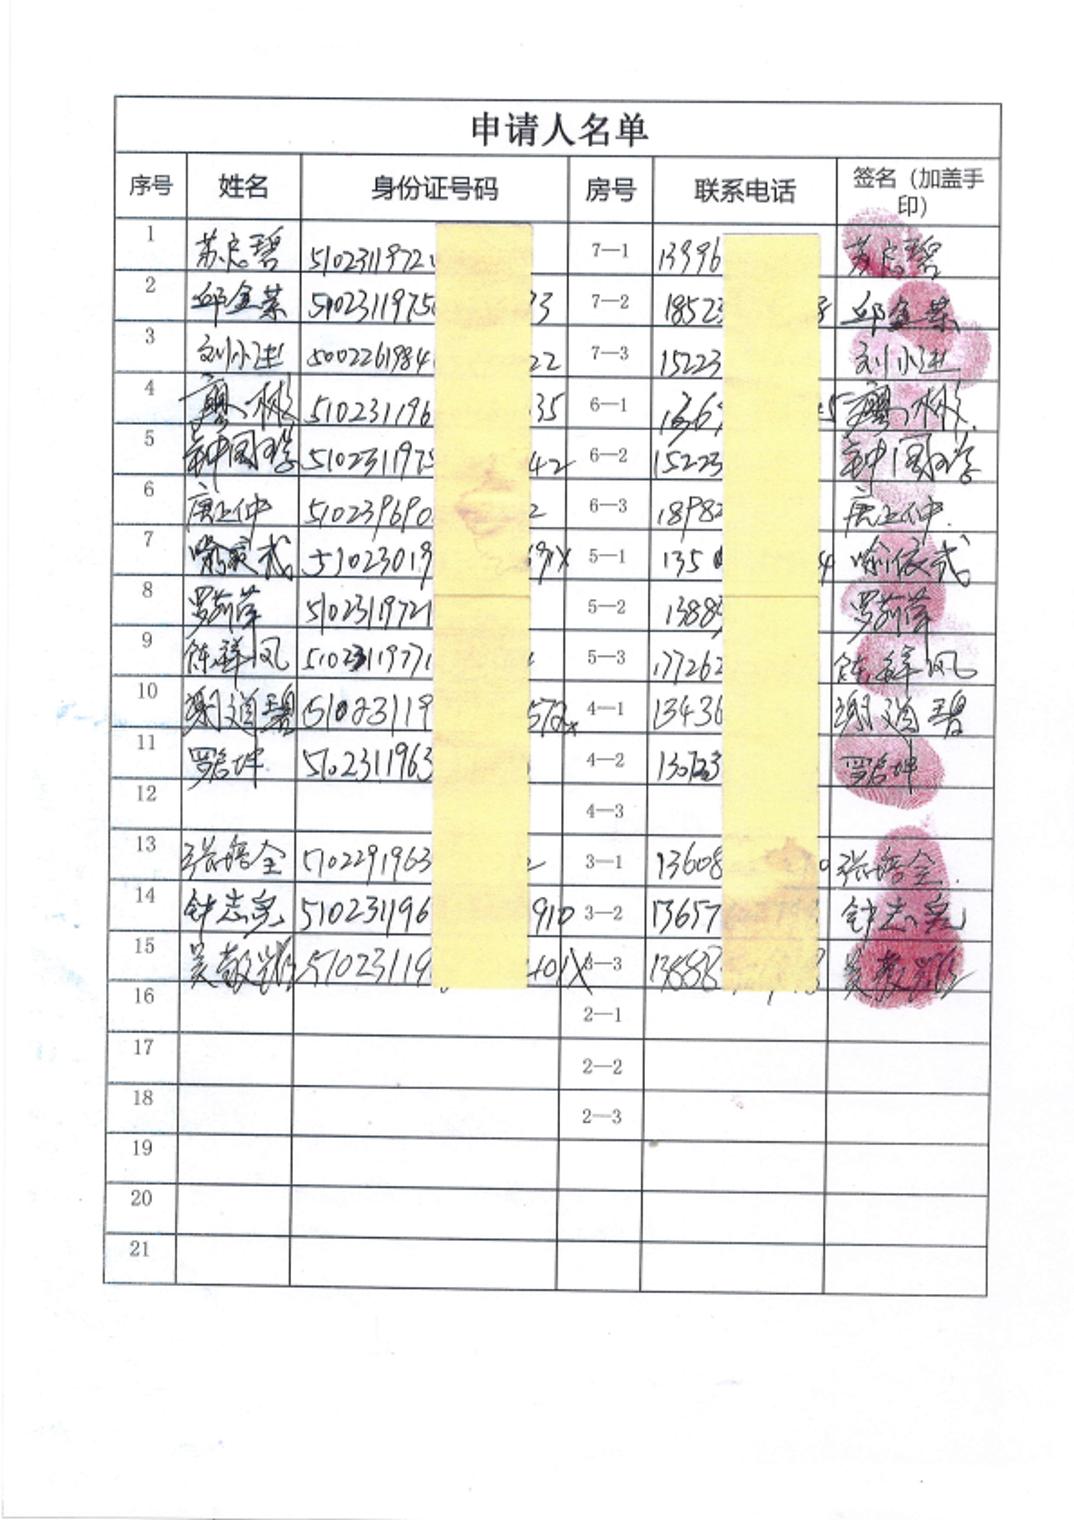 申请人名单
序号 姓名 身份证号码 房号 联系电话 签名（加盖手印）
1 苏启碧 5102311972 7—1 13996 苏启碧
2 邱金荣 5102311975 33 7—2 18523 邱金荣
3 刘小进 5002261984 22 7—3 15223 刘小进
4 廖 510231196 35 6—1 1367 5 廖
5 钟国学 510231197 42 6—2 15223 钟国学
6 唐上仲 510239690 2 6—3 18982 唐上仲
7 喻 51023019 9X 5—1 135 4 喻
8 罗莉萍 5102311972 5—2 1388 罗莉萍
9 陈祥凤 510231197 5—3 177262 陈祥凤
10 谢道碧 51023119 4—1 13436 谢道碧
11 罗 坤 5102311963 4—2 130 罗 坤
12 4—3
13 张培全 5102291963 2 3—1 13608 0 张培全
14 钟志 510231196 910 3—2 13657 钟志
15 吴 51023119 401X 3—3 13888 吴
16 2—1
17 2—2
18 2—3
19
20
21